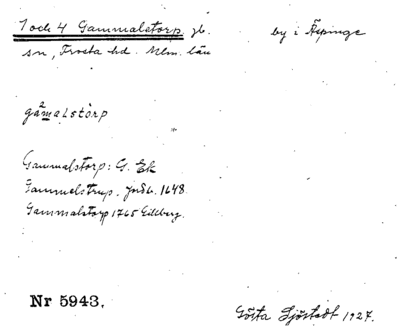 1 och 4 Gammalstorp gb. by i Äspinge
sn, Frosta hd. Mlm. län
gamalstòrp
Gammalstorp: G. Ek
Gammelstrup. Jordb. 1648.
Gammalstorp 1765 Gillberg.
Nr 5943. Gösta Sjöstedt 1927.